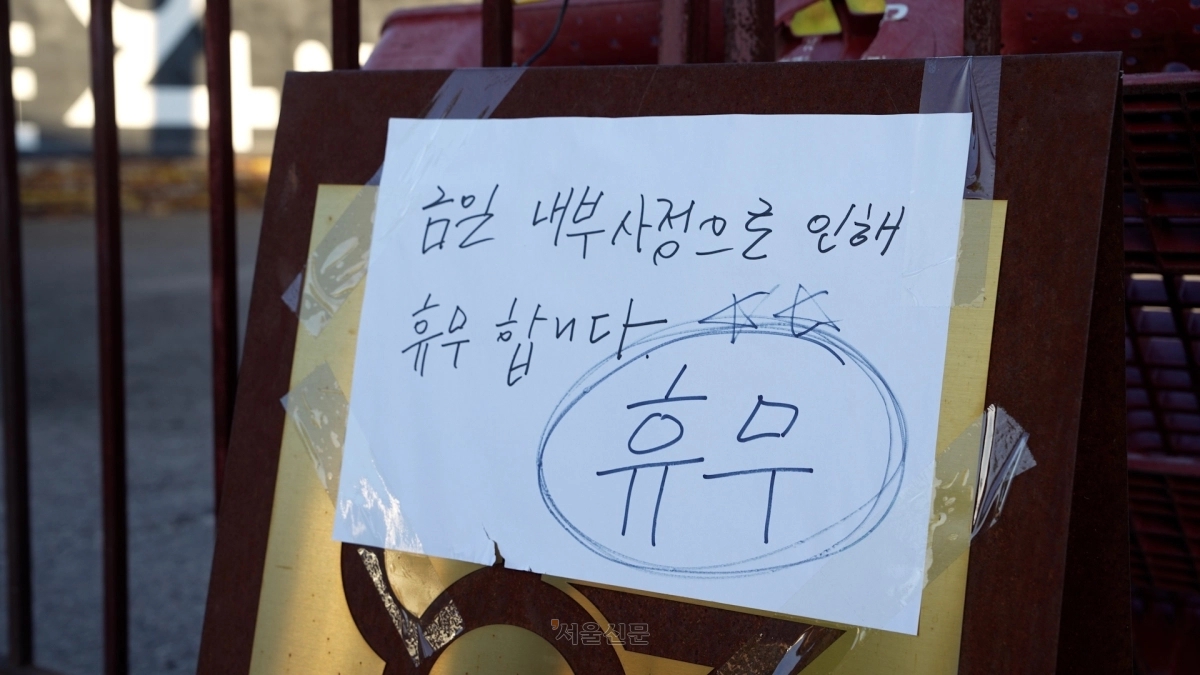 금일 내부사정으로 인해
휴무 합니다. ☆☆
휴무
서울신문